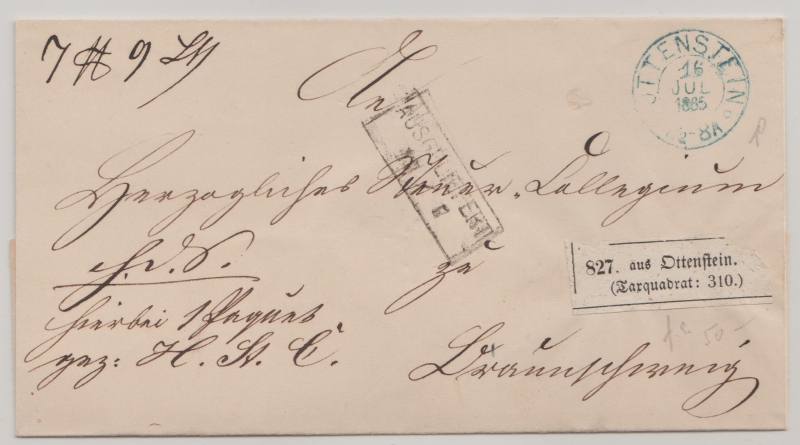 7 ℔ 9 Lth
OTTENSTEIN
16
JUL
1865
-8A
An
AUSGELIEFERT
Herzogliches Steuer-Collegium
h. d. S.
zu
827. aus Ottenstein.
(Taxquadrat: 310.)
hierbei 1 Paquet
gez: H. St. C.
Braunschweig
50-